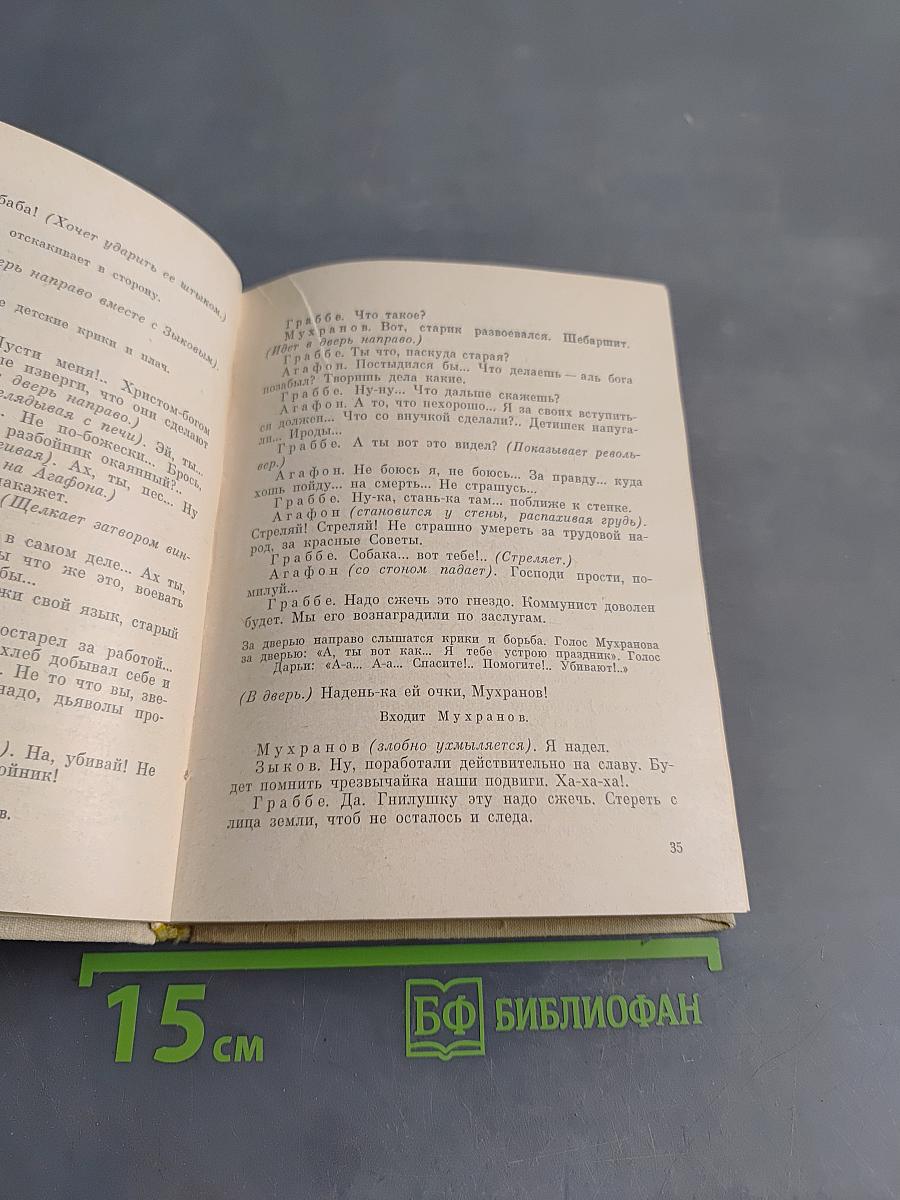 баба! (Хочет ударить ее штыком.)
отскакивает в сторону.
дверь направо вместе с Зыковым).
детские крики и плач.
Пусти меня!.. Христом-богом
изверги, что они сделают
дверь направо.)
с печи). Эй, ты...
Не по-божески... Брось,
разбойник окаянный?..
Ах, ты, пес... Ну
на Агафона.)
накажет.
(Щелкает затвором вин-
в самом деле... Ах ты,
что же это, воевать
бы...
свой язык, старый
остарел за работой...
хлеб добывал себе и
Не то что вы, зве-
надо, дьяволы про-
На, убивай! Не
Граббе. Что такое?
Мухранов. Вот, старик развоевался. Шебаршит.
(Идет в дверь направо.)
Граббе. Ты что, паскуда старая?
Агафон. Постыдился бы... Что делаешь — аль бога
позабыл? Творишь дела какие.
Граббе. Ну-ну... Что дальше скажешь?
Агафон. А то, что нехорошо... Я за своих вступить-
ся должен... Что со внучкой сделали?.. Детишек напуга-
ли... Ироды...
Граббе. А ты вот это видел? (Показывает револь-
вер.)
Агафон. Не боюсь я, не боюсь... За правду... куда
хошь пойду... на смерть... Не страшусь...
Граббе. Ну-ка, стань-ка там... поближе к стенке.
Агафон (становится у стены, распахивая грудь).
Стреляй! Стреляй! Не страшно умереть за трудовой на-
род, за красные Советы.
Граббе. Собака... вот тебе!.. (Стреляет.)
Агафон (со стоном падает). Господи прости, по-
милуй...
Граббе. Надо сжечь это гнездо. Коммунист доволен
будет. Мы его вознаградили по заслугам.
За дверью направо слышатся крики и борьба. Голос Мухранова
за дверью: «А, ты вот как... Я тебе устрою праздник». Голос
Дарьи: «А-а... А-а... Спасите!.. Помогите!.. Убивают!..»
(В дверь.) Надень-ка ей очки, Мухранов!
Входит Мухранов.
Мухранов (злобно ухмыляется). Я надел.
Зыков. Ну, поработали действительно на славу. Бу-
дет помнить чрезвычайка наши подвиги. Ха-ха-ха!.
Граббе. Да. Гнилушку эту надо сжечь. Стереть с
лица земли, чтоб не осталось и следа.
35
15 см
БФ БИБЛИОФАН